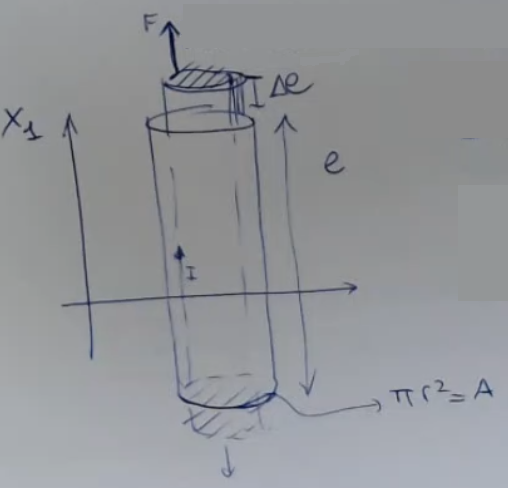 F
Δe
X₁
e
I
πr²=A